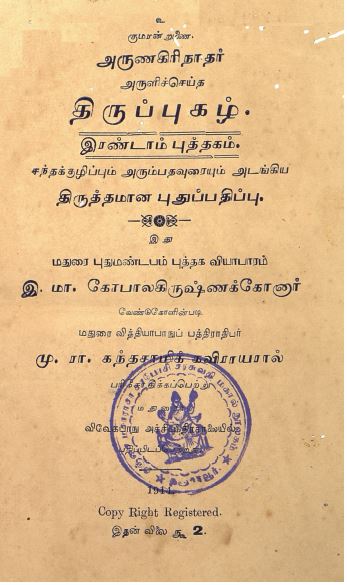 உ
குமரன் துணை.
அருணகிரிநாதர்
அருளிச்செய்த
திருப்புகழ்.
இரண்டாம் புத்தகம்.
சந்தக்குழிப்பும் அரும்பதவுரையும் அடங்கிய
திருத்தமான புதுப்பதிப்பு.
இஃது
மதுரை புதுமண்டபம் புத்தக வியாபாரம்
இ. மா. கோபாலகிருஷ்ணக்கோனார்
வேண்டுகோளின்படி
மதுரை வித்தியாபாநுப் பத்திராதிபர்
மு. ரா. கந்தசாமிக் கவிராயரால்
பரிசோதிக்கப்பெற்று
மதுரை
விவேகபாநு அச்சியந்திரசாலையில்
பதிப்பிடப்பெற்றது.
Copy Right Registered.
இதன் விலை ரூ 2.